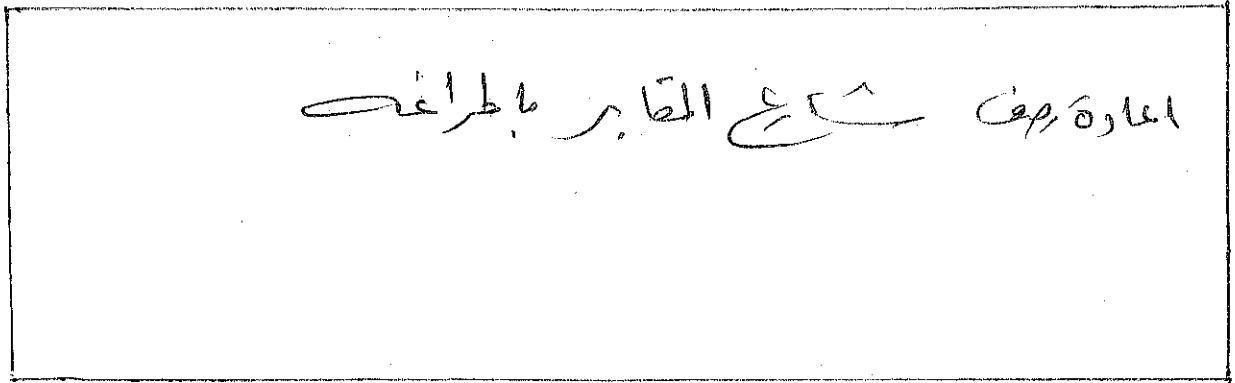 اعادة رصف شارع المقابر باطرافه